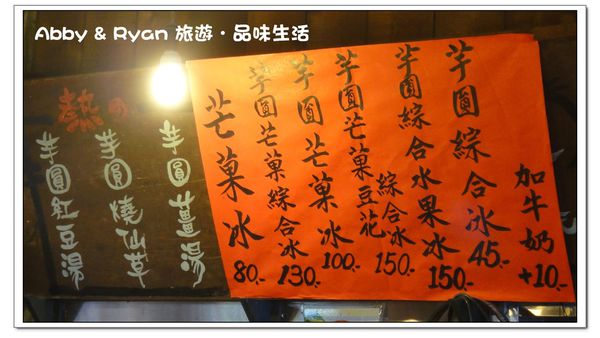 Abby & Ryan 旅遊・品味生活
加牛奶 +10.-
芋圓綜合冰 45.-
芋圓綜合水果冰 150.-
芋圓芒菓豆花綜合冰 150.-
芋圓芒菓冰 100.-
芋圓芒菓綜合冰 130.-
芒菓冰 80.-
熱的
芋圓薑湯
芋圓燒仙草
芋圓紅豆湯